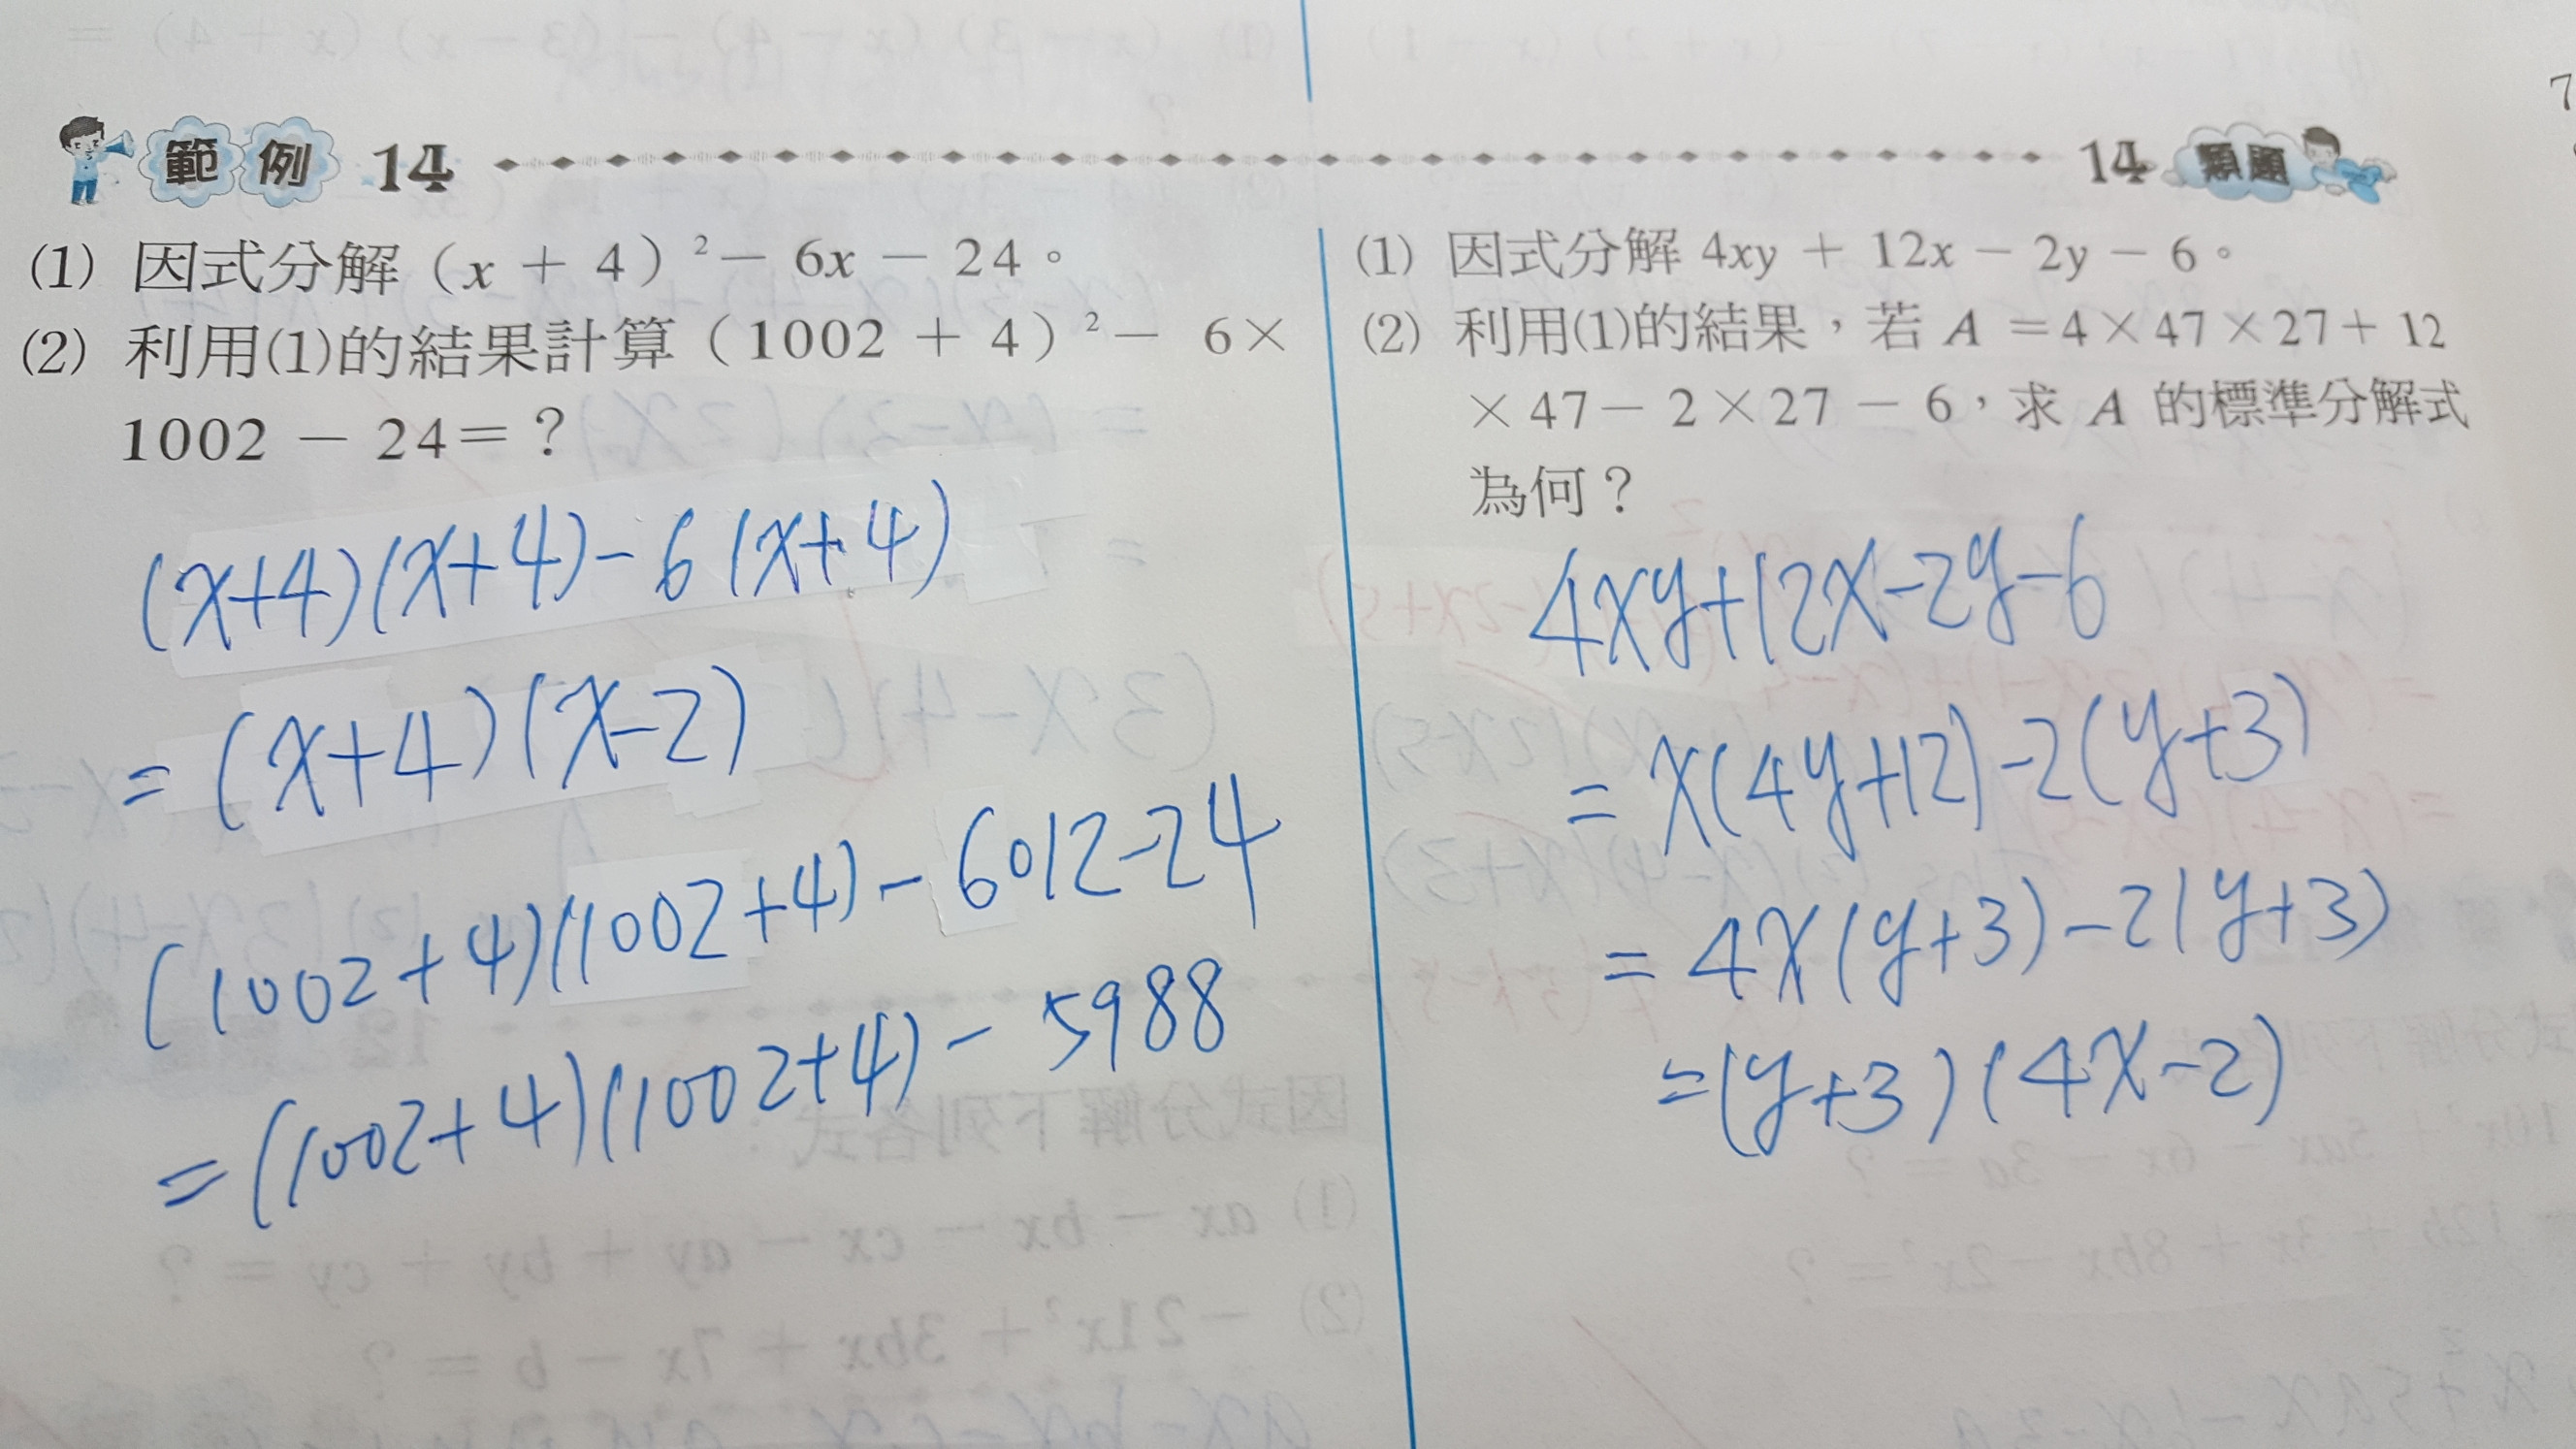 範例 14
(1) 因式分解(x + 4)²- 6x - 24。
(2) 利用(1)的結果計算(1002 + 4)²- 6×
1002 - 24=?
(x+4)(x+4)-6(x+4)
=(x+4)(x-2)
(1002+4)(1002+4)-6012-24
=(1002+4)(1002+4)-5988
14 類題
(1) 因式分解 4xy + 12x - 2y - 6。
(2) 利用(1)的結果,若 A =4×47×27+12
×47-2×27-6,求 A 的標準分解式
為何?
4xy+12x-2y-6
=x(4y+12)-2(y+3)
=4x(y+3)-2(y+3)
=(y+3)(4x-2)
7